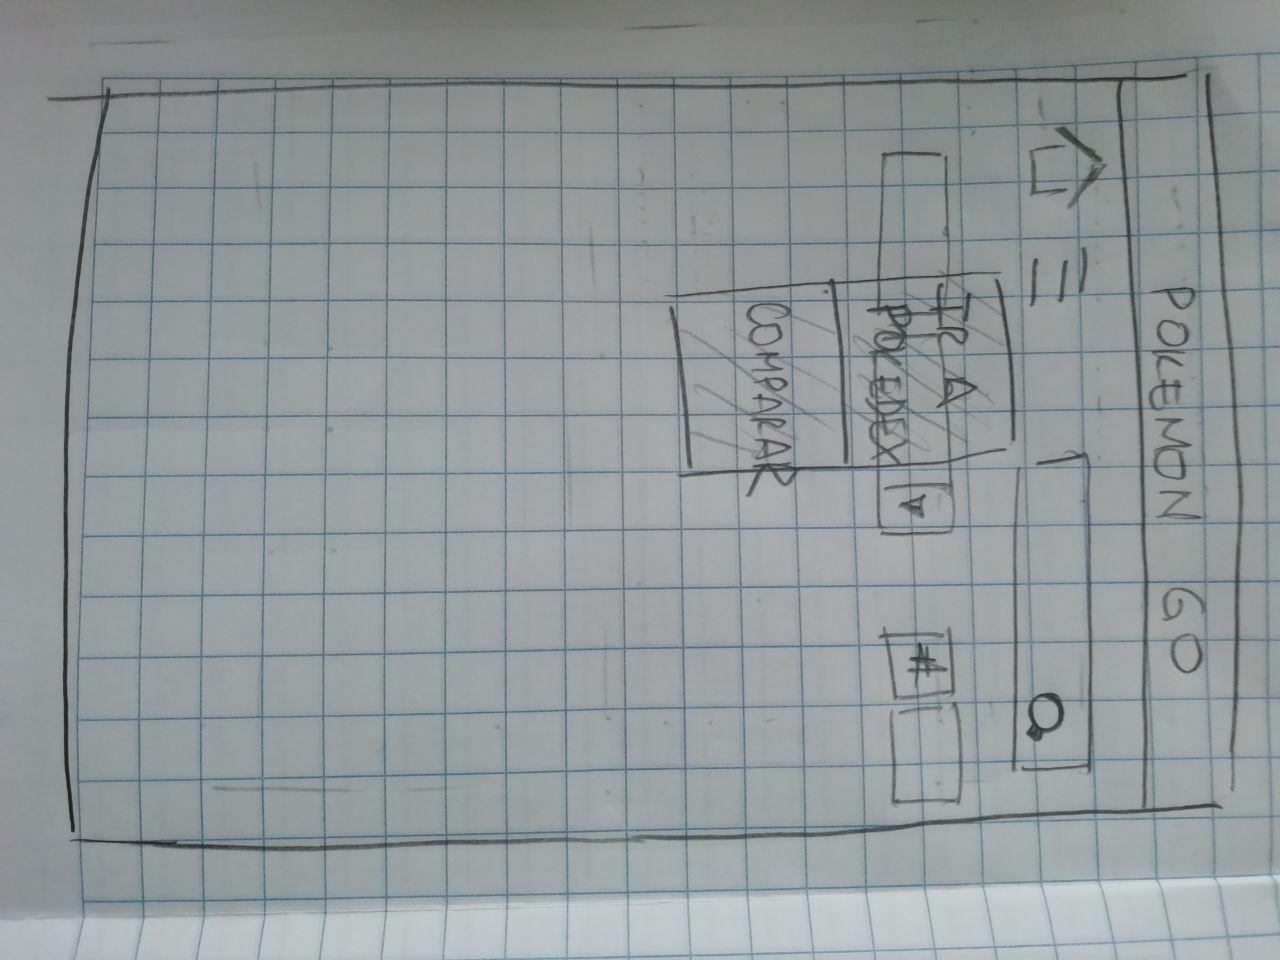 POKEMON GO
IR A
POKEDEX
#
COMPARAR